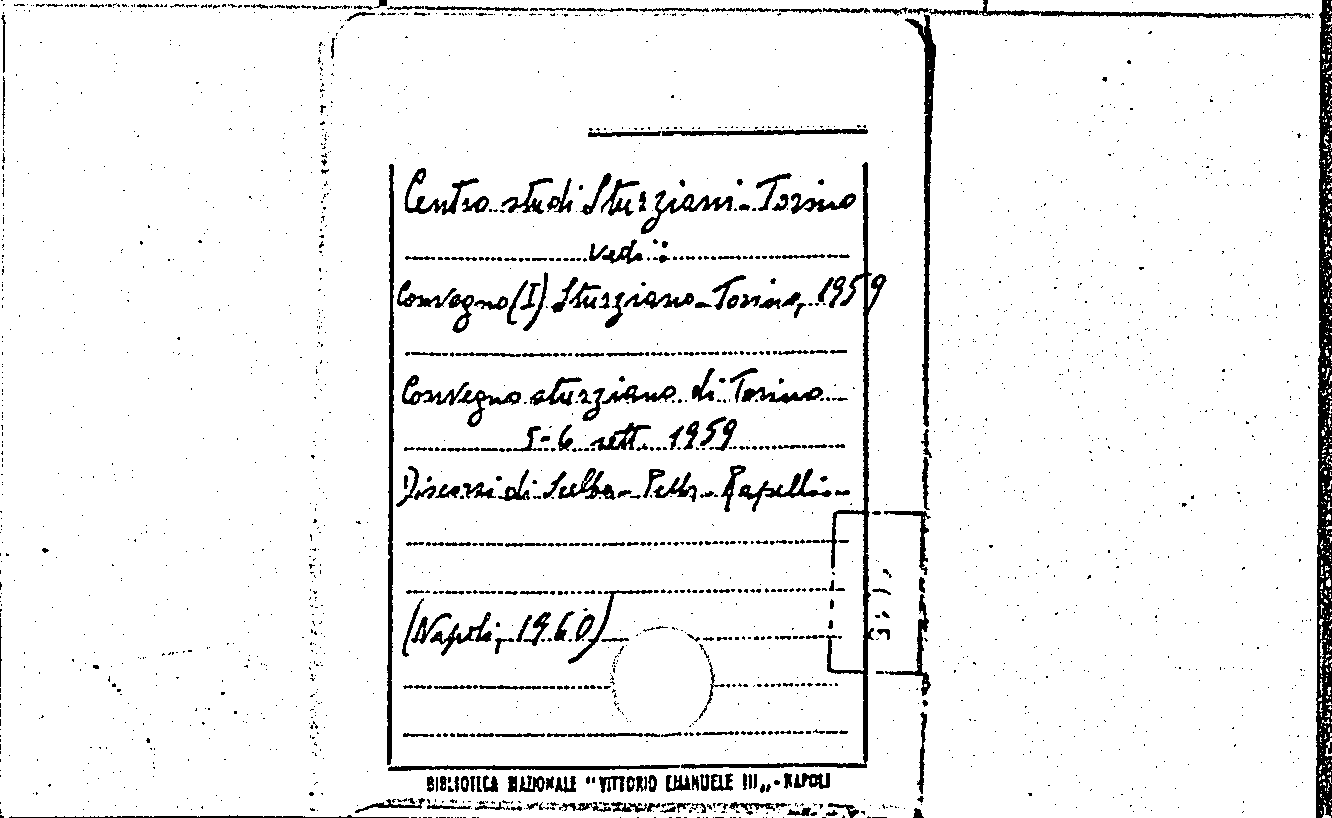 Centro studi Sturziani - Torino
vedi:
Convegno (I) Sturziano - Torino, 1959
Convegno sturziano di Torino
5-6 sett. 1959
Discorsi di Scelba - Petr. - Rapelli -
(Napoli, 1960)
BIBLIOTECA NAZIONALE "VITTORIO EMANUELE III„ - NAPOLI